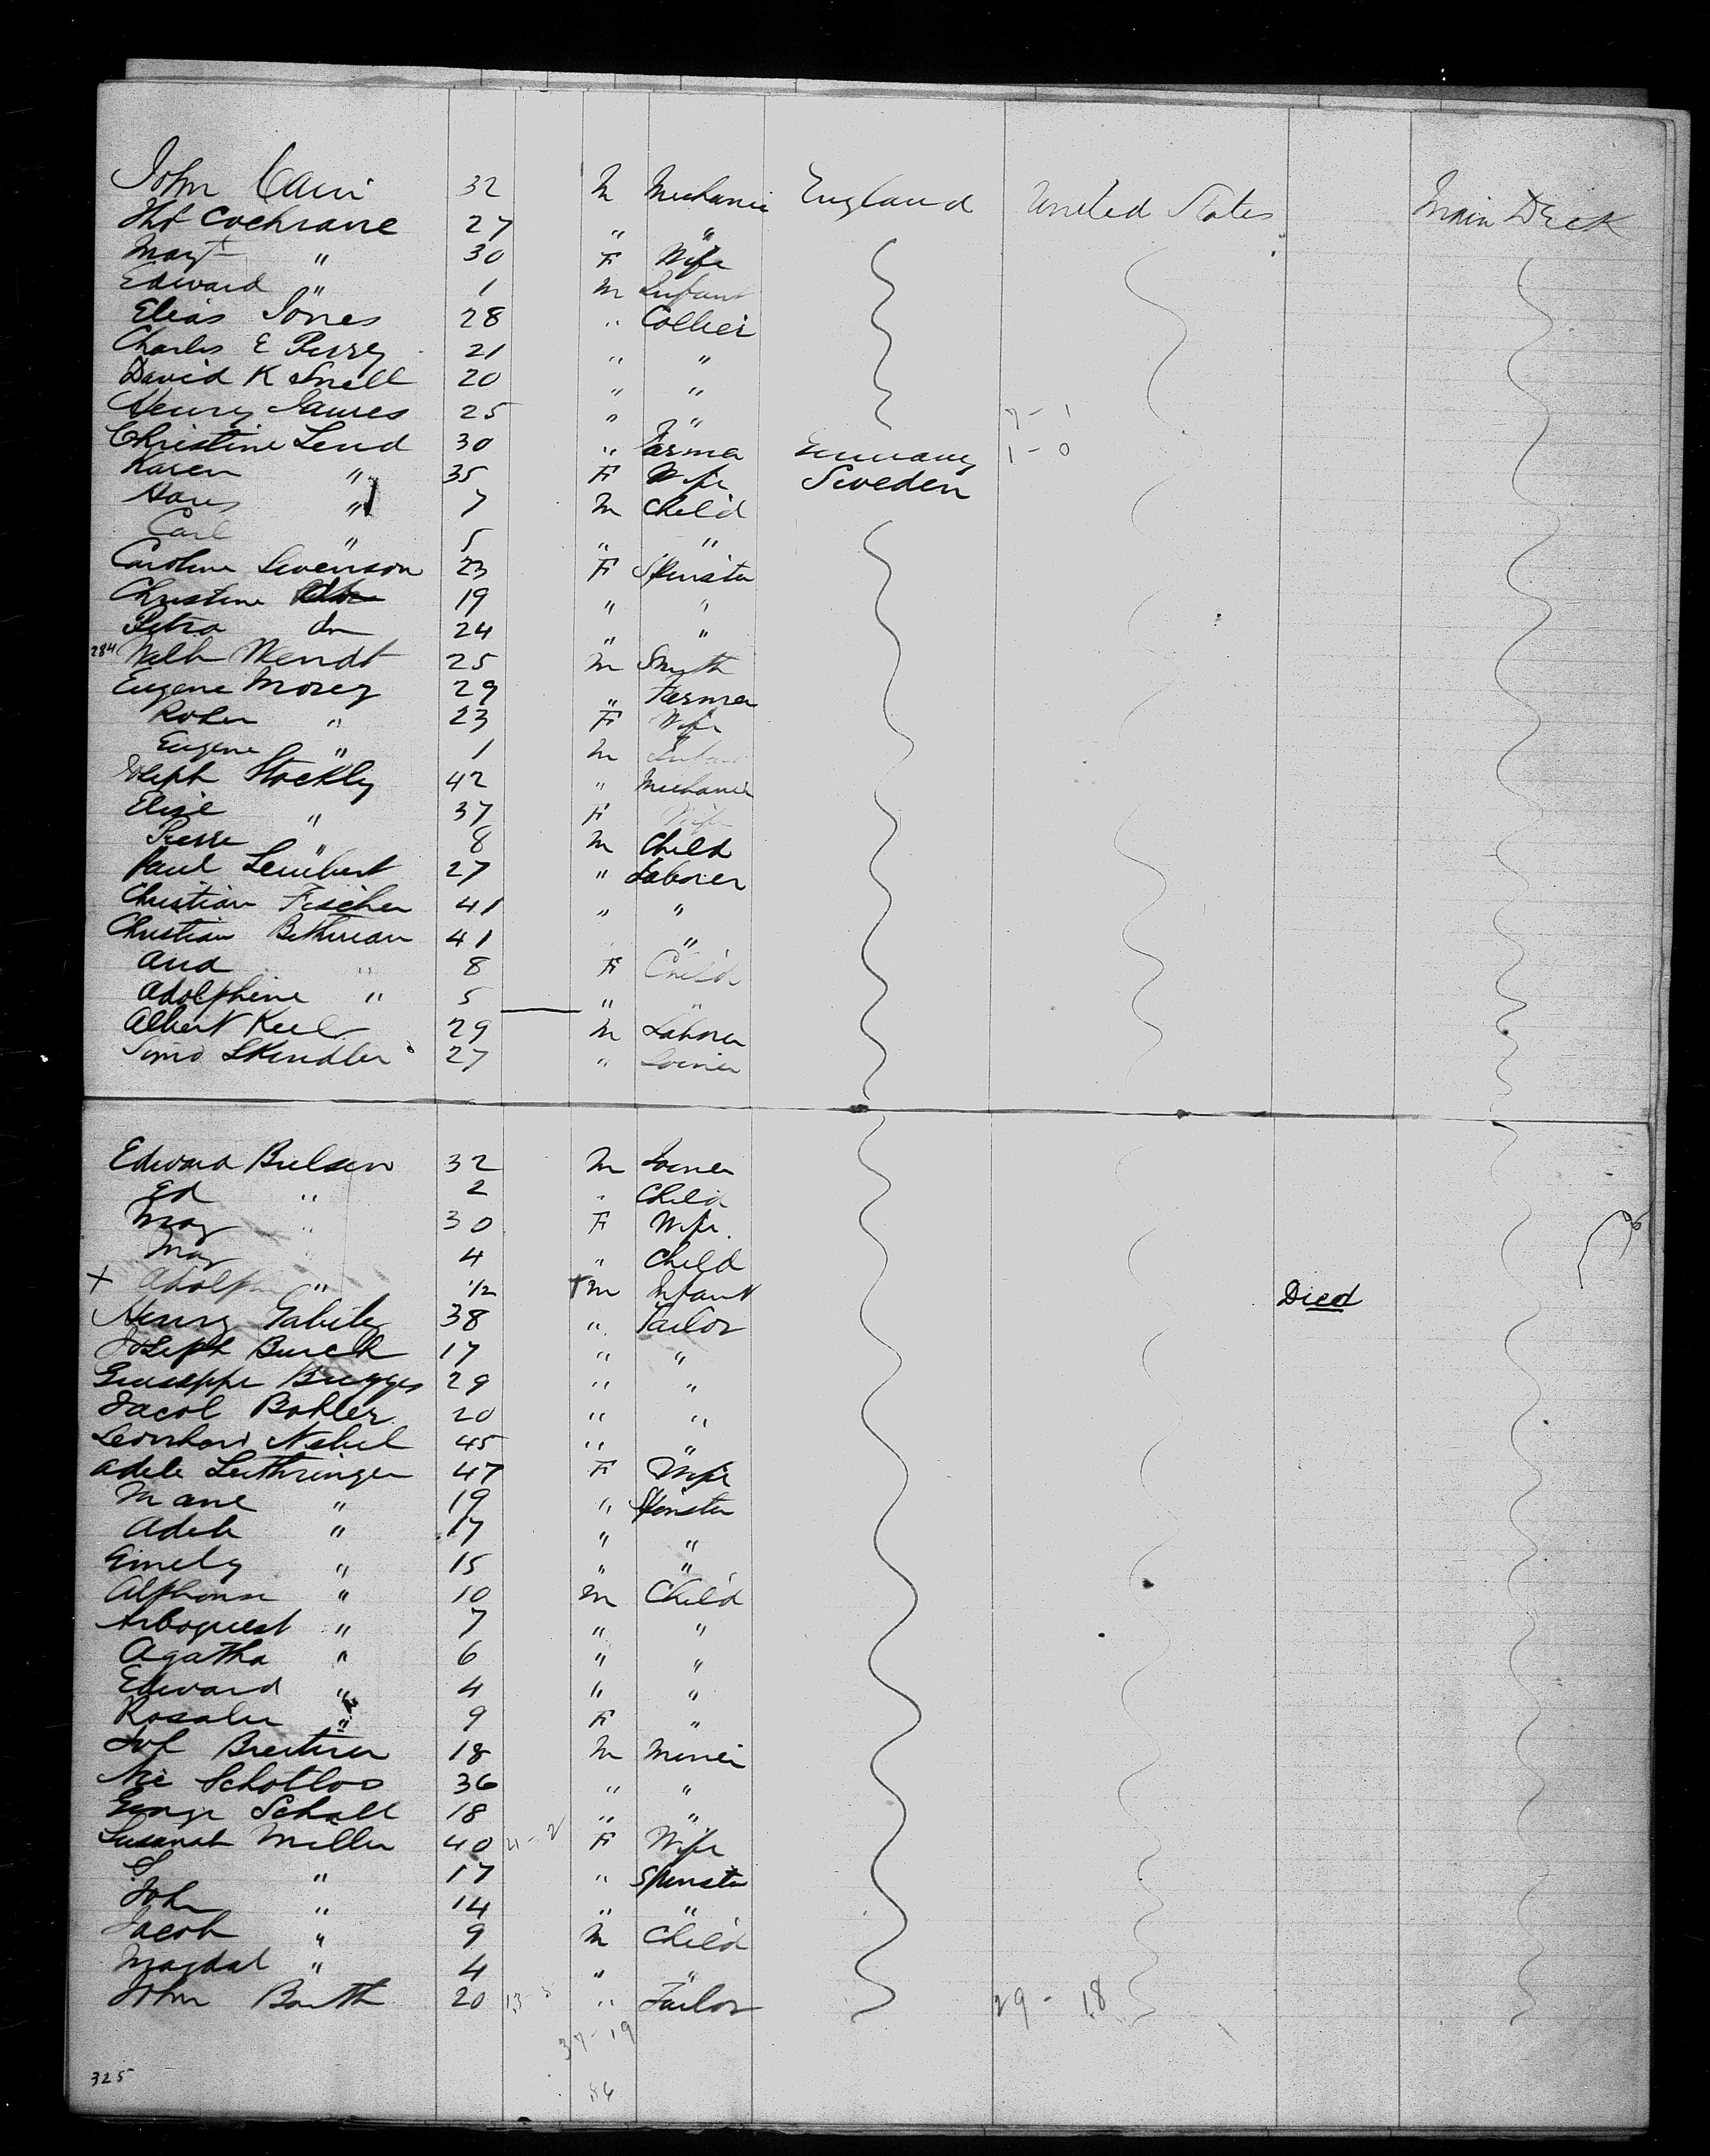 John Cain 32 M Mechanic England United States Main Deck
Tho Cochrane 27 " "
Margt " 30 F Wife
Edward " 1 M Infant
Elias Jones 28 " Collier
Charles E Perry 21 " "
David K Snell 20 " "
Henry James 25 " " 7 - 1
Christine Lend 30 " Farmer Germany 1 - 0
Karen " 35 F Wife Sweden
Hans " 7 M Child
Carl " 5 " "
Caroline Swenson 23 F Spinster
Christine 19 " "
Petra do 24 " "
284 Wendt 25 M Smith
Eugene Morey 29 " Farmer
23 F Wife
Eugene " 1 M Infant
Joseph Stockly 42 " Mechanic
Elise " 37 F Wife
Pierre " 8 M Child
Paul Leimbert 27 " Laborer
Christian Fischer 41 " "
Christian 41 "
Ana " 8 F Child
Adolphine " 5 " "
Albert Keel 29 M Laborer
Skindler 27 " Joiner
Edward Bulsen 32 M Joiner
Ed " 2 " Child
May " 30 F Wife
May " 4 " Child
+ Adolph " 1/2 M Infant Died
Henry 38 " Tailor
Joseph Burch 17 " "
Giuseppe 29 " "
Jacob Bohler 20 " "
Nebel 45 " "
Adele Leithringer 47 F Wife
Marie " 19 " Spinster
Adele " 17 " "
Emely " 15 " "
Alphonse " 10 M Child
Arbogust " 7 " "
Agatha " 6 " "
Edward " 4 " "
Rosalie " 9 F "
Jos 18 M Miner
Nic Schotlos 36 " "
George Schall 18 " "
Susanah Miller 40 21 - 2 F Wife
" 17 " Spinster
John " 14 " "
Jacob " 9 M Child
Magdal " 4 " "
John Barth 20 " Tailor 29 - 18
37 - 19
56
325